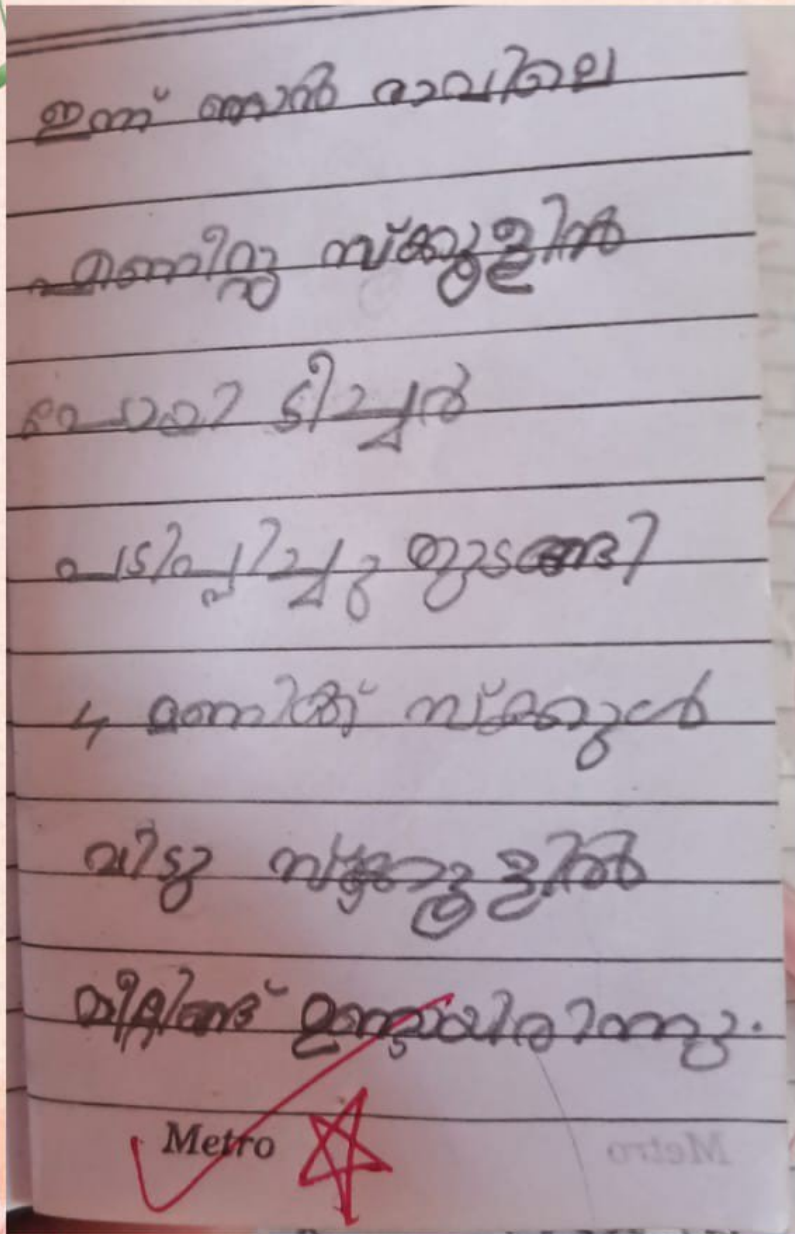 ഇന്ന് ഞാൻ രാവിലെ
എണീറ്റു സ്ക്കൂളിൽ
പോയി ടീച്ചർ
പടിപ്പിച്ചു തുടങ്ങി
4 മണിക്ക് സ്ക്കൂൾ
വിട്ടു സ്ക്കൂളിൽ
മീറ്റിങ്ങ് ഉണ്ടായിരിന്നു.
Metro